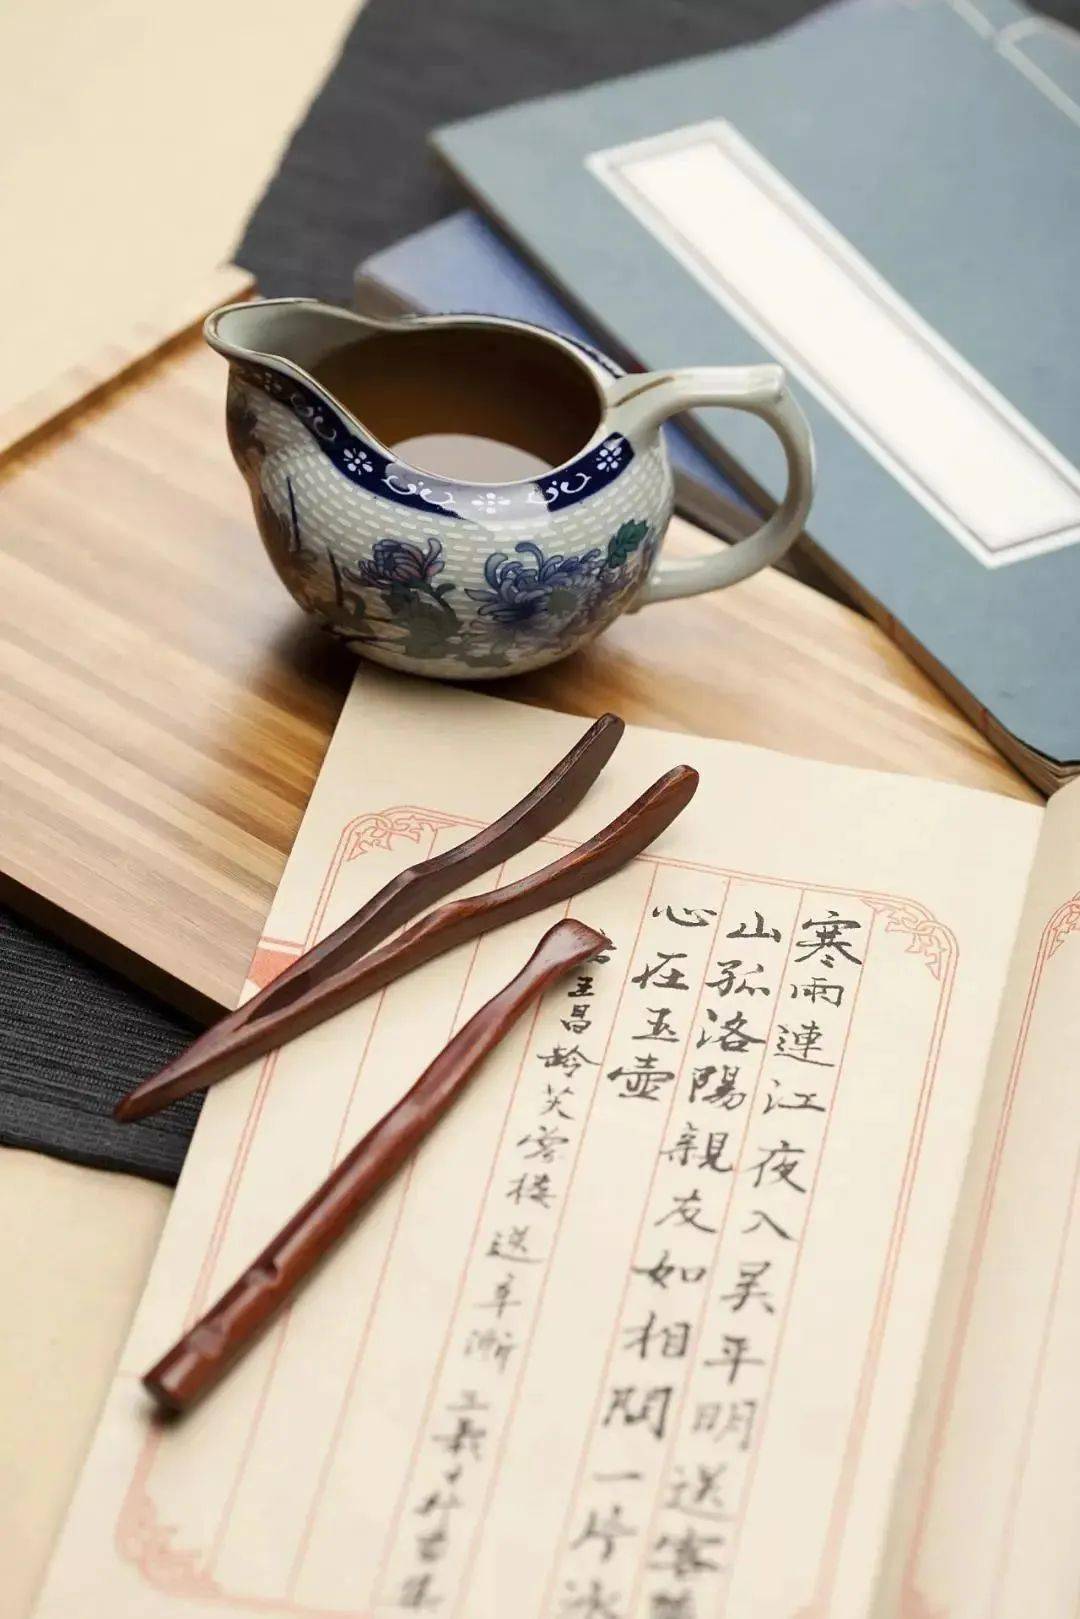 寒雨連江夜入吴平明送客
山孤洛陽親友如相問一片冰
心在玉壺
王昌齡芙蓉楼送辛漸